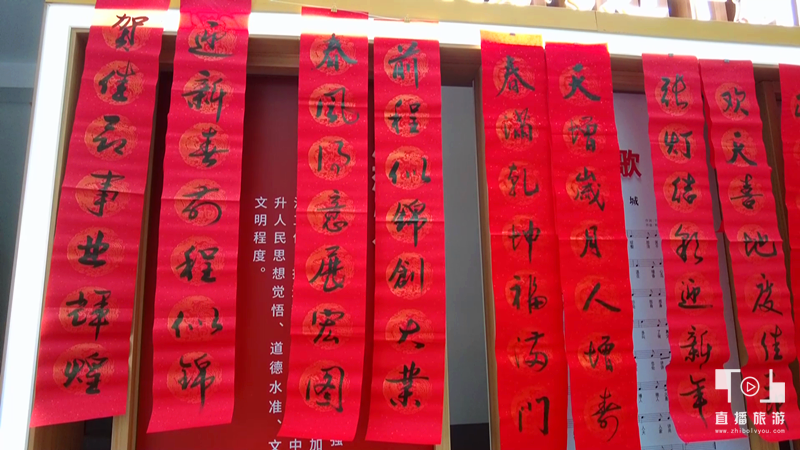 贺佳节事业辉煌
迎新春前程似锦
春风得意展宏图
前程似锦创大业
春满乾坤福满门
天增岁月人增寿
张灯结彩迎新年
欢天喜地度佳
歌
城
升人民思想觉悟、道德水准、文
文明程度。
中
加
强
直播旅游
www.zhibolvyou.com